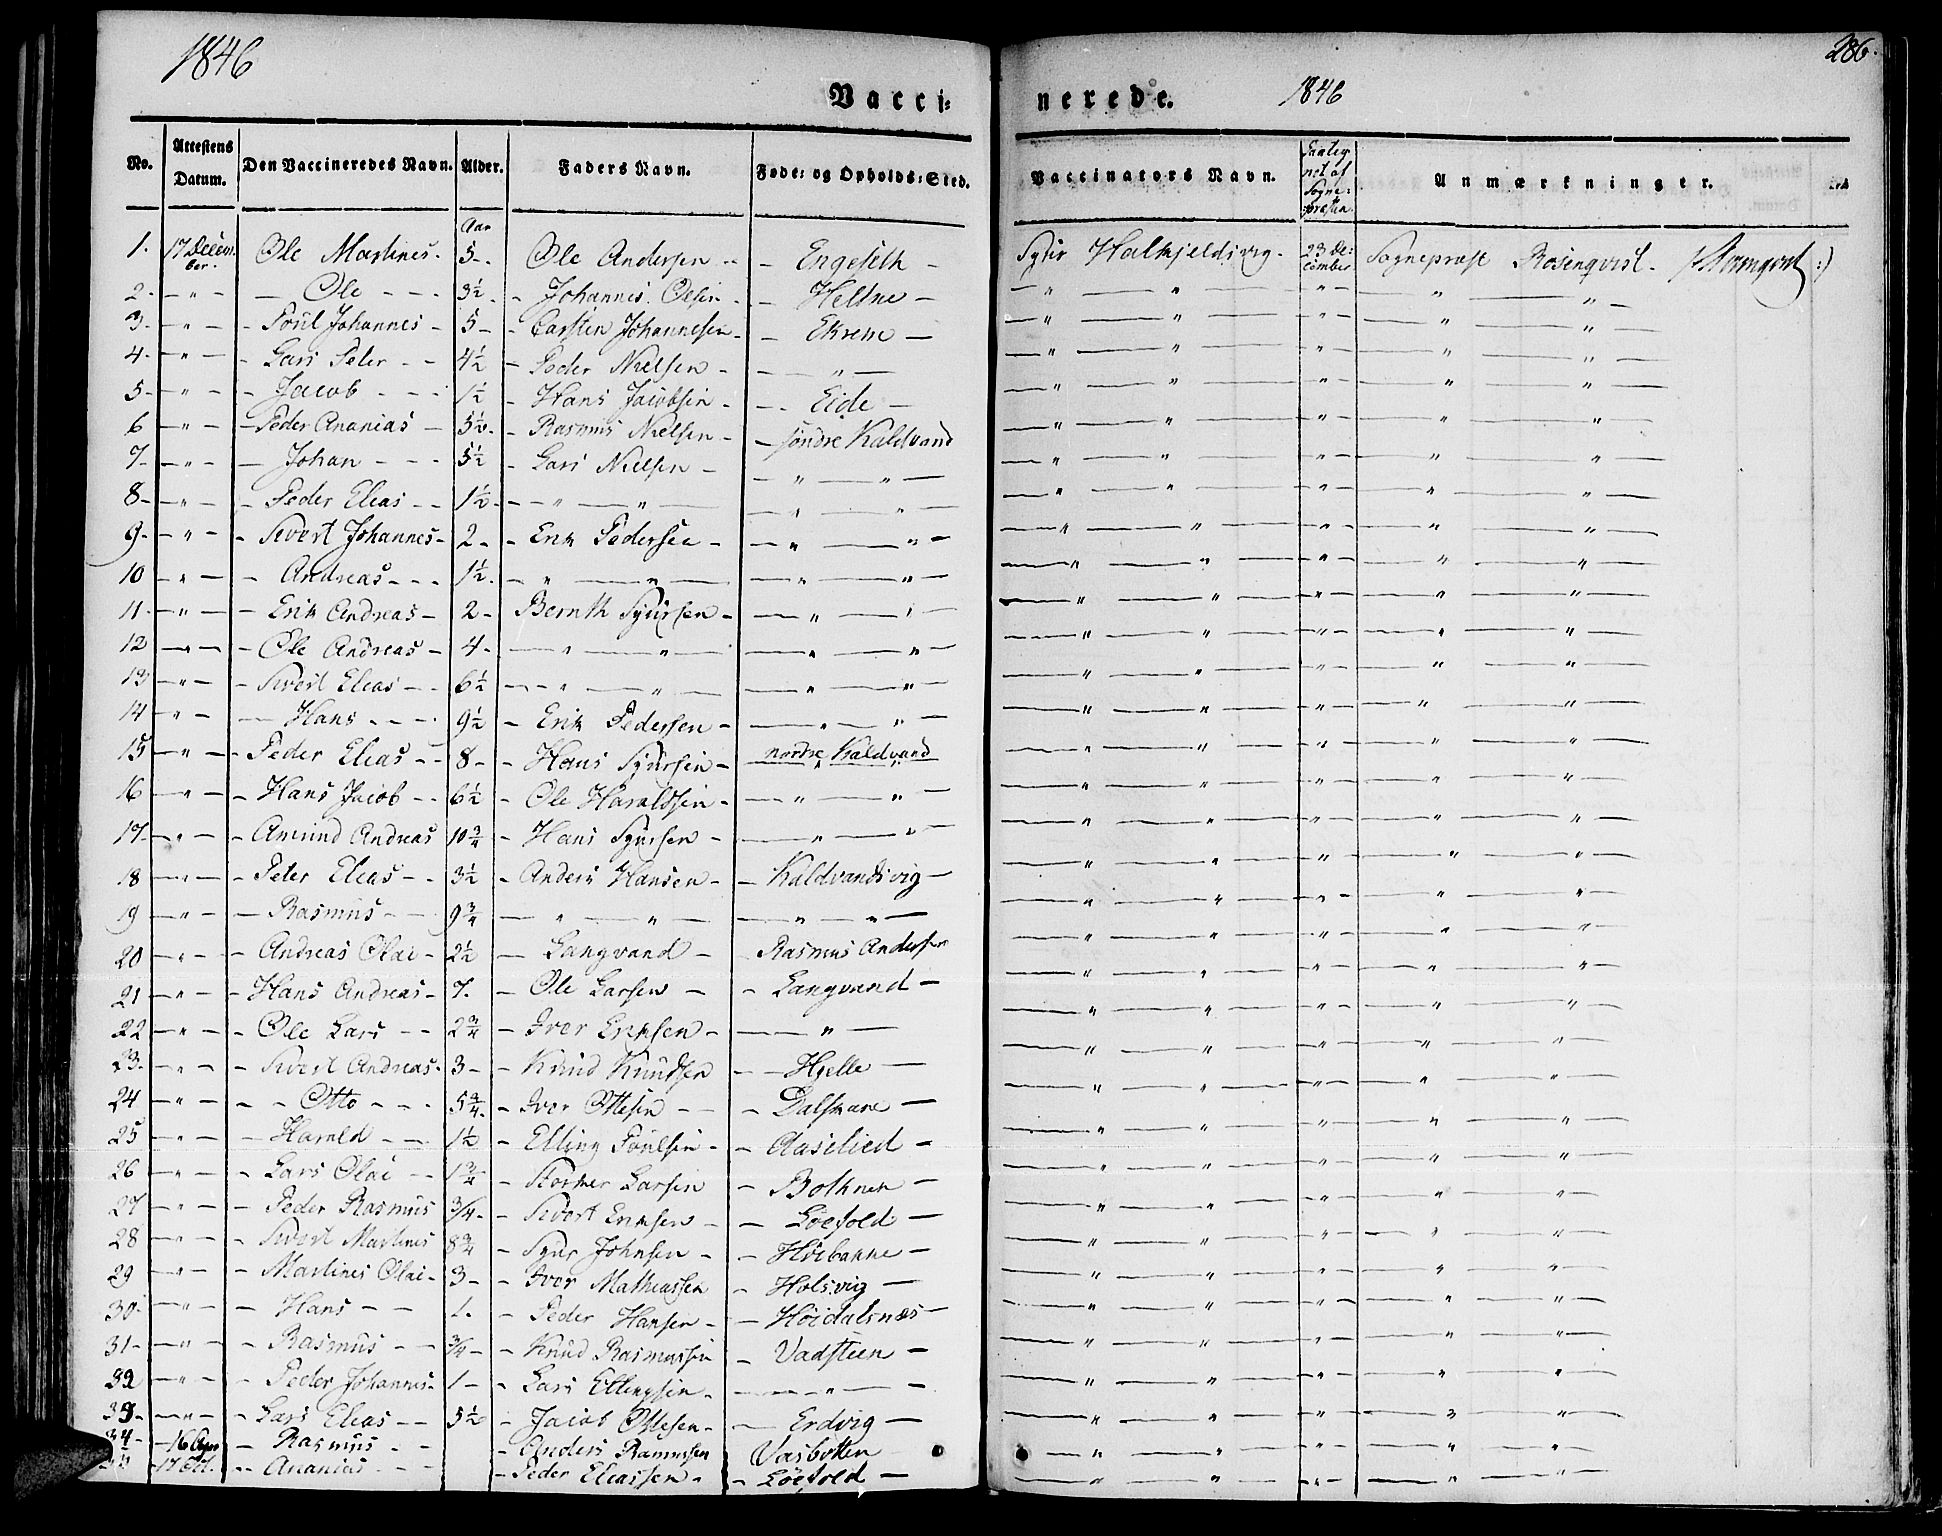 1846
286.
Vacci:
nerede.
1846
No. Attestens Datum. Den Vaccineredes Navn. Alder. Faders Navn. Føde: og Opholds: Sted. Vaccinators Navn. Anmærkninger.
Aar
1. 17 Decem ber. Ole Martines. 5 - Ole Andersen - Engeseth - Syver Halkjeldsvig. 23 De: cember Sognepræst Rosenqvist.
2 - " - Ole - 3½ - Johannes Olsen - Heltne - " " " " "
3 - " - Poul Johannes - 5 - Carsten Johannesen - Ekrene - " " " " "
4 - " - Lars Peter - 4½ - Peder Nielsen - " - " " " " "
5 - " - Jacob - 1½ - Hans Jacobsen - Eide - " " " " "
6 - " - Peder Ananias - 5½ - Rasmus Nielsen - søndre Kaldvand " " " " "
7 - " - Johan - 5½ - Lars Nielsen - " " " " " " "
8 - " - Peder Elias - 1½ - " " - " " " " " " "
9 - " - Sivert Johannes - 2 - Erik Pedersen - " " " " " " "
10 - " - Andreas - 1½ - " " - " " " " " " "
11 - " - Erik Andreas - 2 - Bernth Syversen - " " " " " " "
12 - " - Ole Andreas - 4 - " " - " " " " " " "
13 - " - Sivert Elias - 6½ - " " - " " " " " " "
14 - " - Hans - 9½ - Erik Pedersen - " " " " " " "
15 - " - Peder Elias - 8 - Hans Syversen - nordre Kaldvand " " " " "
16 - " - Hans Jacob - 6½ - Ole Haraldsen - " " " " " " "
17 - " - Amund Andreas 10¾ - Hans Syversen - " " " " " " "
18 - " - Peter Elias - 3½ - Anders Hansen - Kaldvandsvig - " " " " "
19 - " - Rasmus - 9¾ - " " - " " " " " " "
20 - " - Andreas Olai - 2½ - Langvand - Rasmus Andersen " " " " "
21 - " - Hans Andreas - 7. - Ole Larsen - Langvand - " " " " "
22 - " - Ole Lars - 2¾ - Iver Eriksen - " - " " " " "
23 - " - Sivert Andreas - 3 - Knud Knudsen - Hjelle - " " " " "
24 - " - Otto - 5¾ - Iver Ottesen - Dalskane - " " " " "
25 - " - Harald - 1½ - Elling Poulsen - Aaselied - " " " " "
26 - " - Lars Olai - 1¾ - Larsen - Bothnen - " " " " "
27 - " - Peder Rasmus 3/4 - Sivert Eriksen - Løefold - " " " " "
28 - " - Sivert Martines 8¾ - Syver Johnsen - Høebakke - " " " " "
29 - " - Martines Olai - 3 - Iver Mathiassen - Holsvig - " " " " "
30 - " - Hans - 1. - Peder Hansen - Høidalsnæs - " " " " "
31 - " - Rasmus - 3/4 - Knud Rasmussen - Vadsteen - " " " " "
32 - " - Peder Johannes - 1 - Lars Ellingsen - " - " " " " "
33 - " - Lars Elias - 5½ - Jacob Ottesen - Erdvig - " " " " "
34 - 16 - Rasmus - Anders Rasmussen Vasbotten " " " " "
17 Oct. - Ananias - Peder Eliassen - Løefold - " " " " "